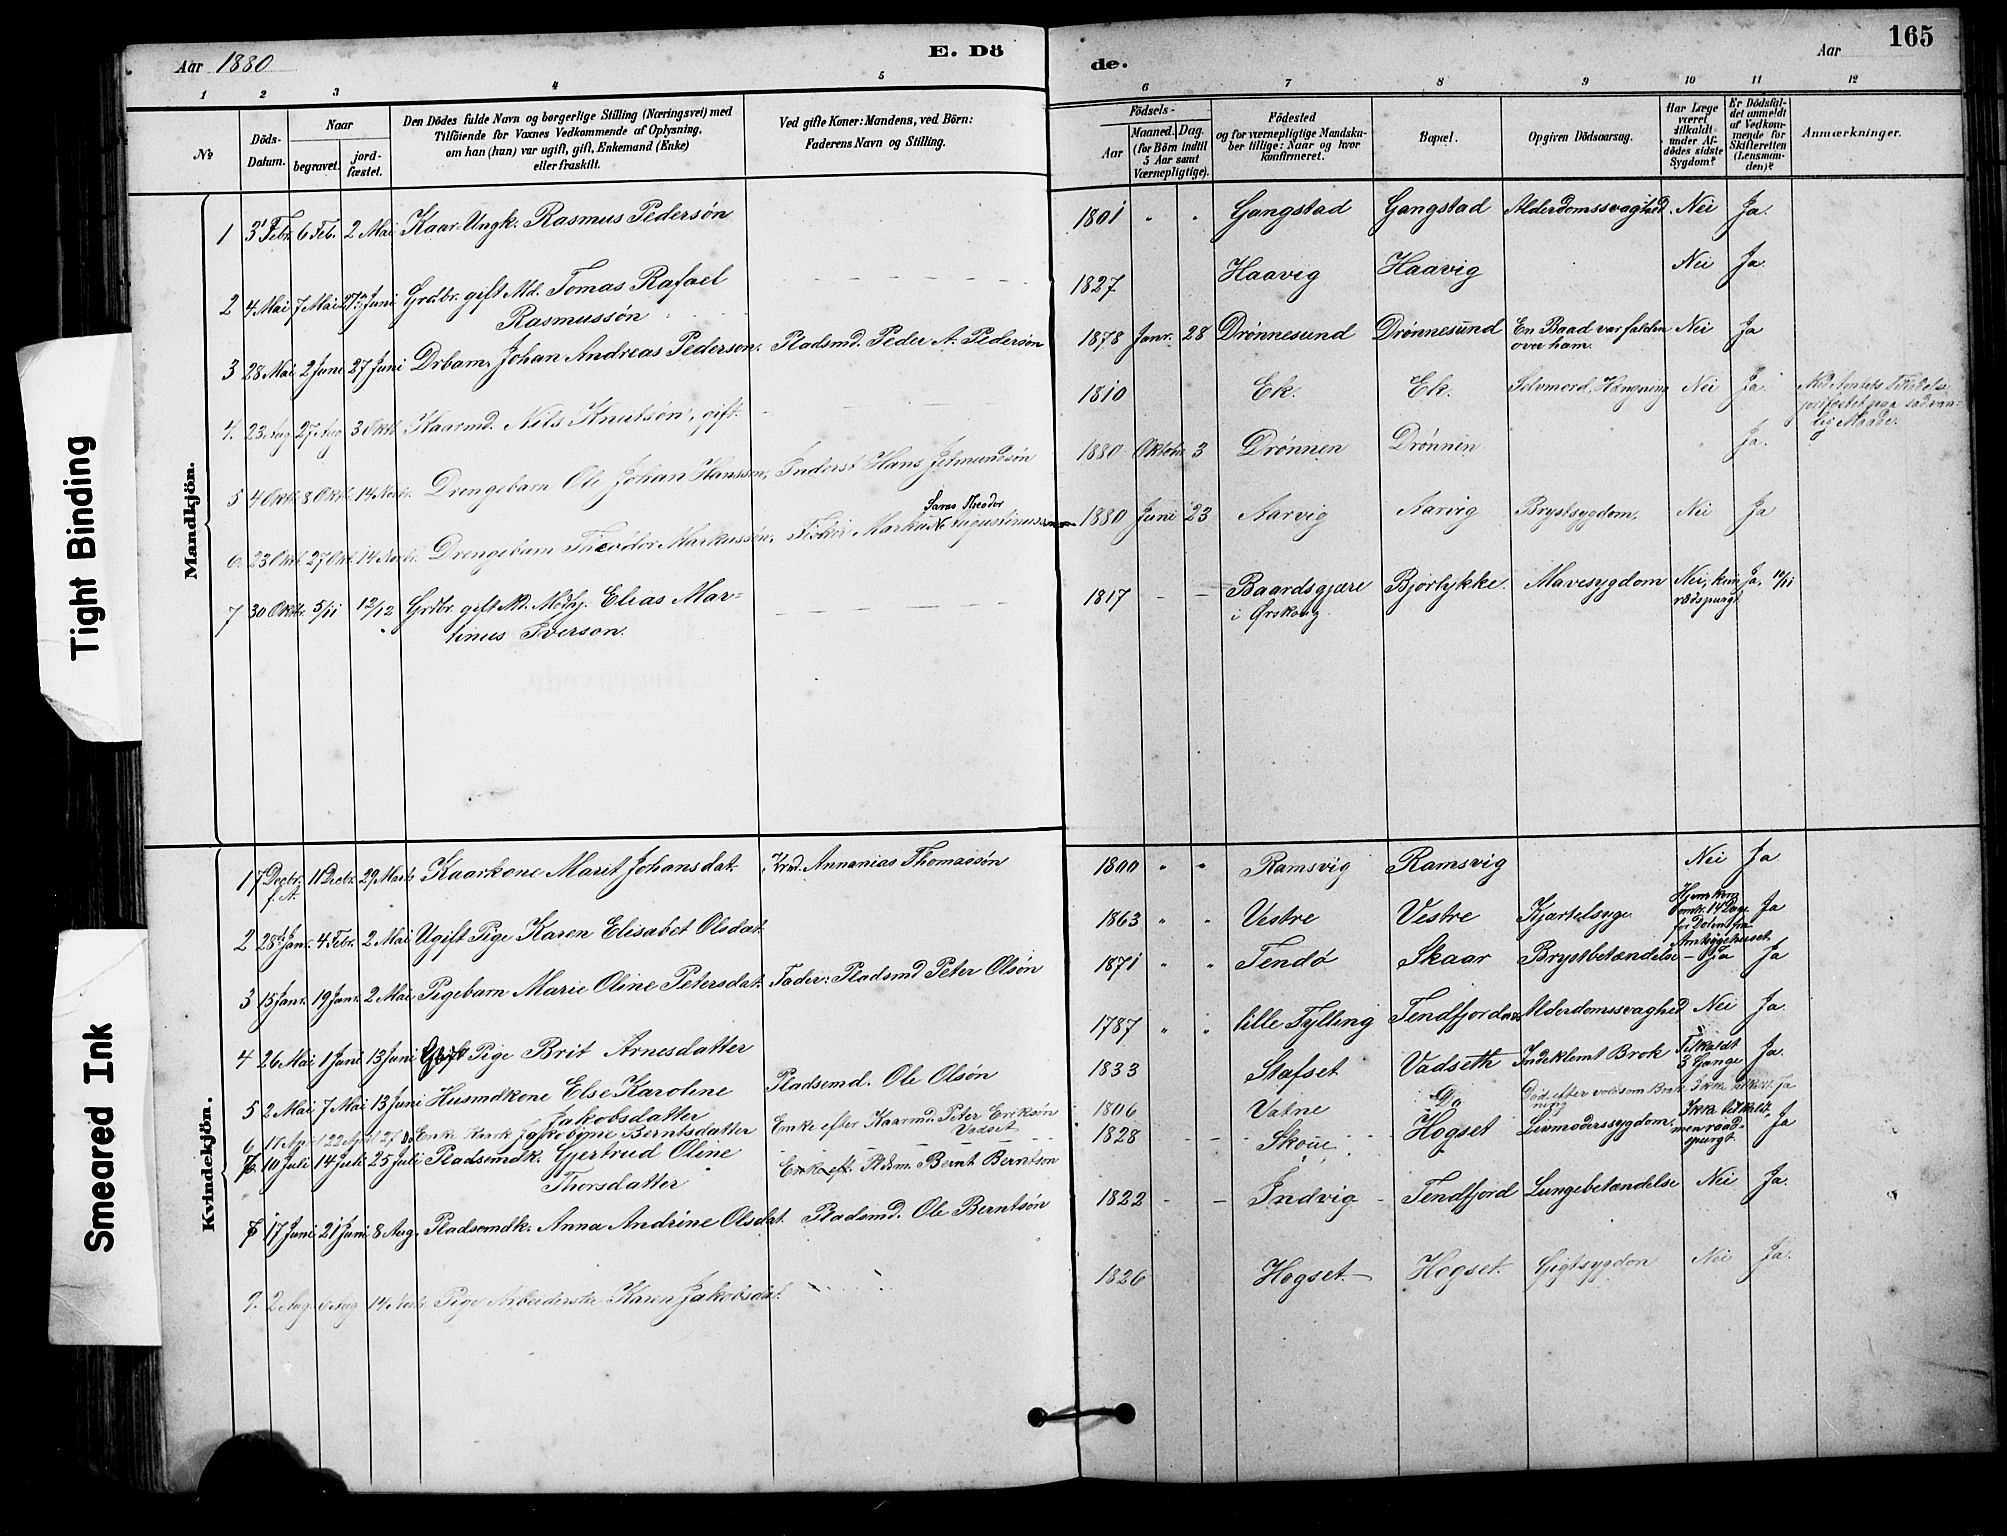 Aar 1880
E. Dö
de.
Aar
165
1 2 3 4 5 6 7 8 9 10 11 12
No
Döds-Datum.
Naar
begravet.
jord-fæstet.
Den Dödes fulde Navn og borgerlige Stilling (Næringsvei) med
Tilföiende for Voxnes Vedkommende af Oplysning,
om han (hun) var ugift, gift, Enkemand (Enke)
eller fraskilt.
Ved gifte Koner: Mandens, ved Börn:
Faderens Navn og Stilling.
Födsels-
Aar
Maaned. Dag.
(for Börn indtil
5 Aar samt
Værnepligtige).
Födested
og for værnepligtige Mandska-
ber tillige: Naar og hvor
konfirmeret.
Bopæl.
Opgiven Dödsaarsag.
Har Læge
været
tilkaldt
under Af-
dödes sidste
Sygdom?
Er Dödsfal-
det anmeldt
af Vedkom-
mende for
Skifteretten
(Lensman-
den)?
Anmærkninger.
Mandkjön.
1 3 Febr. 6 Feb. 2 Mai Kaar-Ungk. Rasmus Pedersön 1801 " " Gangstad Gangstad Alderdomssvaghed. Nei Ja.
2 4 Mai 7 Mai 27 Juni Grdbr. gift Md. Tomas Rafael
Rasmussön 1827 Haavig Haavig Nei Ja.
3 28 Mai 2 Juni 27 Juni Drbarn. Johan Andreas Pederson. Pladsmd. Peder A. Pedersön 1878 Janr. 28 Drönnesund Drönnesund En Baad var falden
over ham. Nei Ja
4. 23 Aug 27 Aug 3 Oktb Kaarmd. Nils Knutsön, gift. 1810 Ek. Ek. Selvmord, Hængning Nei Ja.
jordfæstet paa sædvan-
lig Maade.
5 4 Oktb 8 Oktb 14 Novbr. Drengebarn Ole Johan Hanssen, Inderst Hans Jetmundsön 1880 Oktober 3 Drönnen Drönnen Ja.
6. 23 Oktb. 27 Okt. 14 Novbr. Drengebarn Theodor Markussön, Fisker Markus
1880 Juni 23 Aarvig Aarvig Brystsygdom. Nei Ja
7 30 Oktbr. 5/11 12/12 Grdbr. gift Md. Medhj. Elias Mar-
tinus Iverson. 1817 - - Baardsgjære
i Ørskoug Bjorlykke. Mavesygdom Nei, kun
raadspurgt Ja, 10/11
Kvindekjön.
1 7 Decbr. f. A. 11 Decbr. 29 Marts Kaarkone Marit Johansdat. Krmd. Annanias Thomassön 1800 " " Ramsvig Ramsvig Nei Ja
2 28 Janr. 4 Febr. 2 Mai Ugift Pige Karen Elisabet Olsdat. 1863 " " Vestre Vestre Kjertelsyge. Hjemkom
omtr. 14 Dage
før Døden fra
Amtsygehuset. Ja
3 15 Janr. 19 Janr. 2 Mai Pigebarn Marie Oline Petersdat. Fader: Pladsmd Peter Olsön 1871 " " Tendö Skaar Brystbetændelse - Ja Ja
4 26 Mai 1 Juni 13 Juni Pige Brit Arnesdatter 1787 " " lille Tylling Alderdomssvaghed Nei Ja.
5 2 Mai 7 Mai 13 Juni Husmdkone Else Karoline
Jakobsdatter Pladsemd. Ole Olsön 1833 Stafset Vadseth Indeklemt Brok Tilkaldt
3 Gange Ja.
6 17 April 22 April 27 Enke Berntsdatter Enke efter Kaarmd. Peter Eriksön
Vadset 1806 Vatne Do Ja
10 Juli 14 Juli 25 Juli Pladsemdk. Gjertrud Oline
Thorsdatter Pldsm. Bernt Berntson 1828 - - Skoue Hogset Livmoderssygdom. Ikke tilkaldt,
men raad-
spurgt Ja
17 Juni 21 Juni 8 Aug. Pladsemdk. Anna Andrine Olsdat. Pladsmd. Ole Berntsön 1822 - - Indvig Tendfjord Lungebetændelse Nei Ja.
9. 2 Aug. 6 Aug 14 Novbr. Pige Arbeiderske Karen Jakobsdat. 1826 Hogset. Hogset. Gigtsygdom Nei Ja.
Tight Binding
Smeared Ink